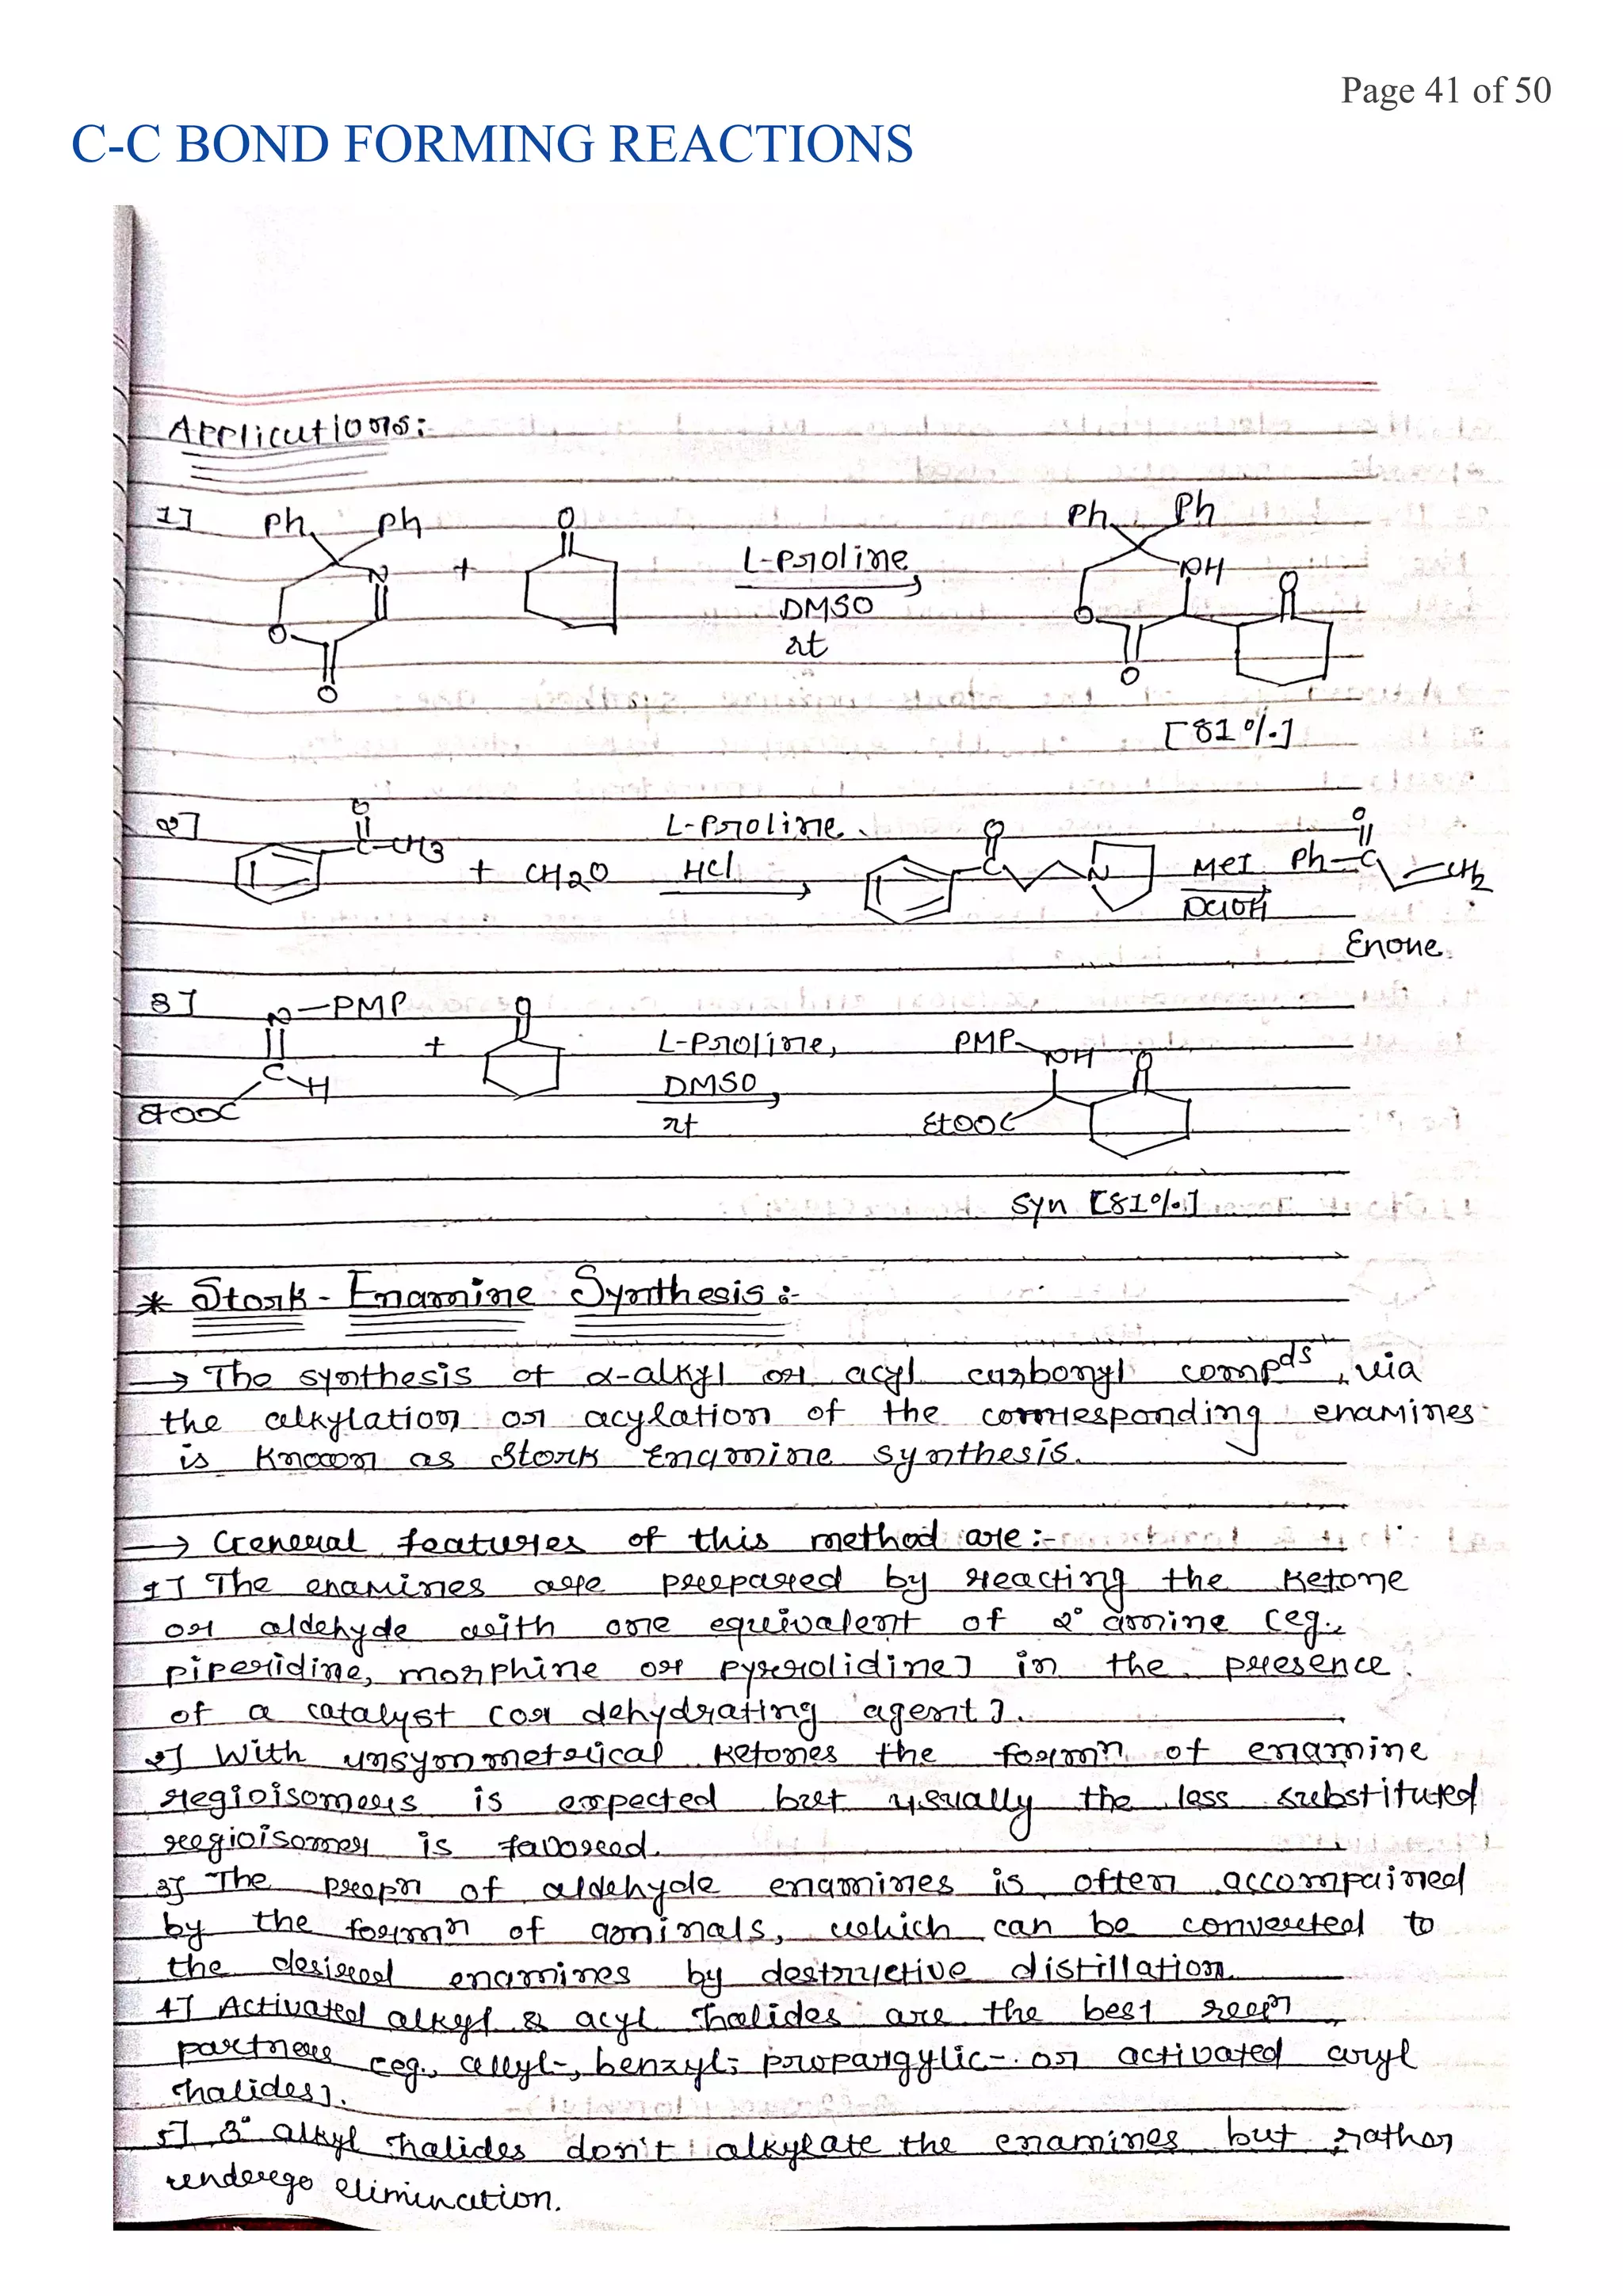 Page 41 of 50
C-C BOND FORMING REACTIONS
Applications:
1] Ph Ph N O O + O L-Proline DMSO rt Ph Ph NH O O O
[81%]
2] O C-CH3 + CH2O L-Proline HCl O C N MeI DCIOH Ph-C O CH2
Enone
3] N-PMP C H EtOOC + O L-Proline, DMSO rt PMP NH EtOOC O
syn [81%]
* Stork-Enamine Synthesis :-
→ The synthesis of α-alkyl or acyl carbonyl compds, via
the alkylation or acylation of the corresponding enamines
is known as Stork Enamine synthesis.
→ General features of this method are :-
1] The enamines are prepared by reacting the ketone
or aldehyde with one equivalent of 2° amine (eg.,
piperidine, morphine or pyrrolidine] in the presence
of a catalyst (or dehydrating agent].
2] With unsymmetrical ketones the formn of enamine
regioisomers is expected but usually the less substituted
regioisomer is favored.
3] The prepn of aldehyde enamines is often accompained
by the formn of aminals, which can be converted to
the desired enamines by destructive distillation.
4] Activated alkyl & acyl halides are the best reepn
partners (eg., allyl-, benzyl- propargylic- or activated aryl
halides].
5] 3° alkyl halides don't alkylate the enamines but rather
undergo elimination.